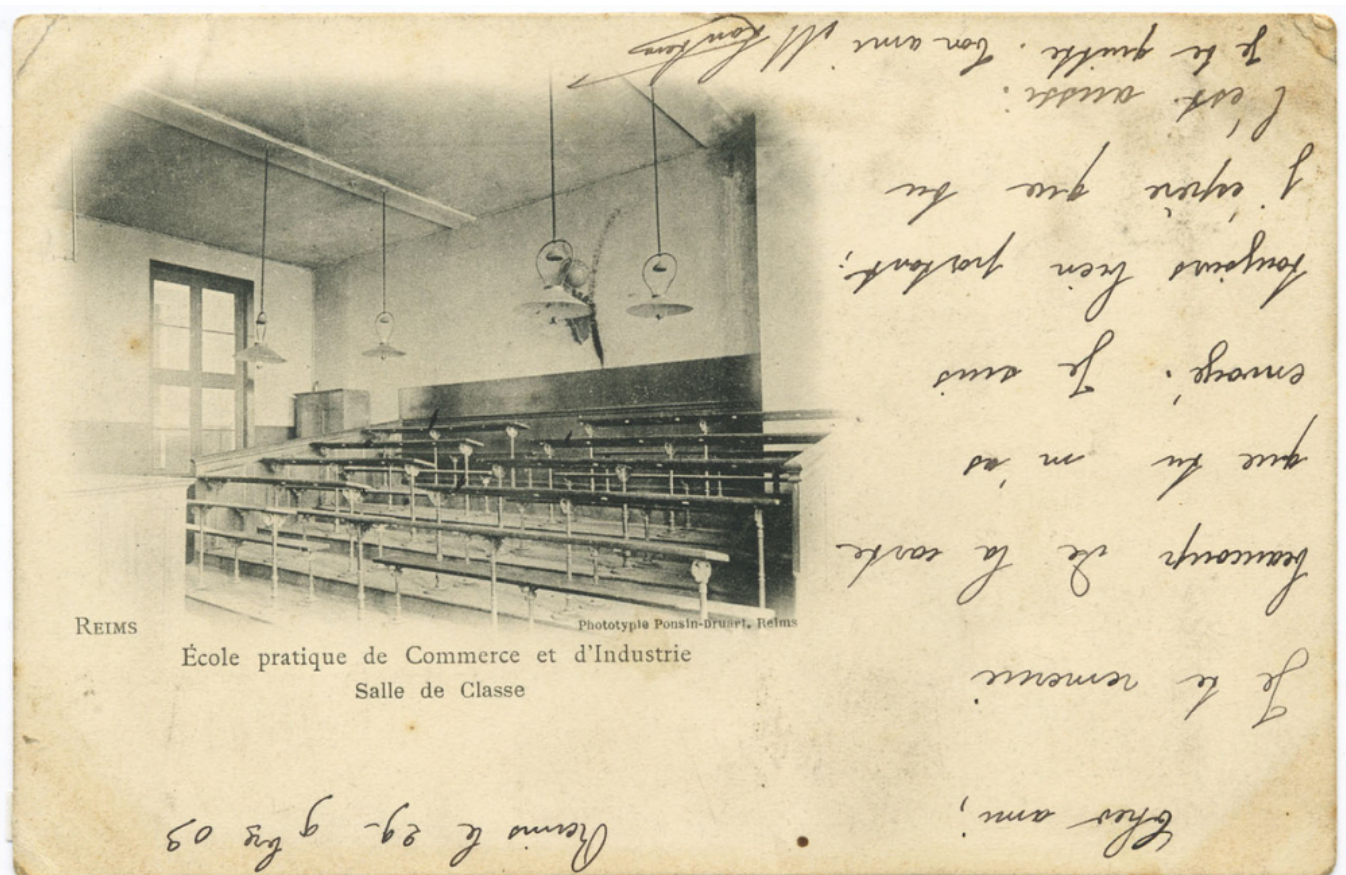 REIMS
Phototypie Ponsin-Druart, Reims
École pratique de Commerce et d'Industrie
Salle de Classe
Reims le 29 9bre 03
Cher ami,
Je te remercie
beaucoup de la carte
que tu m'as
envoyé. Je suis
toujours bien portant;
J'espère que tu
l'est aussi.
Je te quitte. Ton ami M